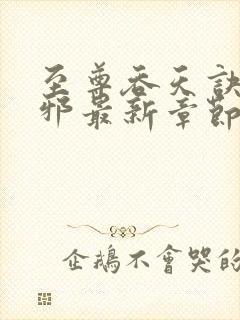 至尊吞天訣
邪最新章節
企鵝不會哭的